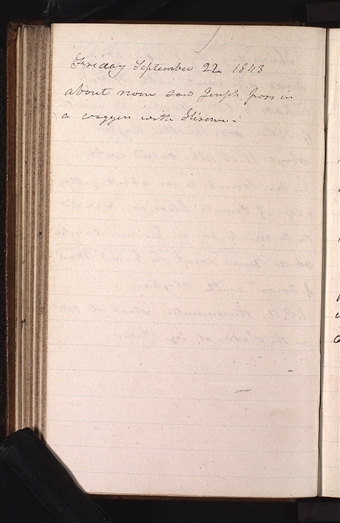 Friday September 22 1843
about noon saw Joseph pass in
a waggon with Hiram